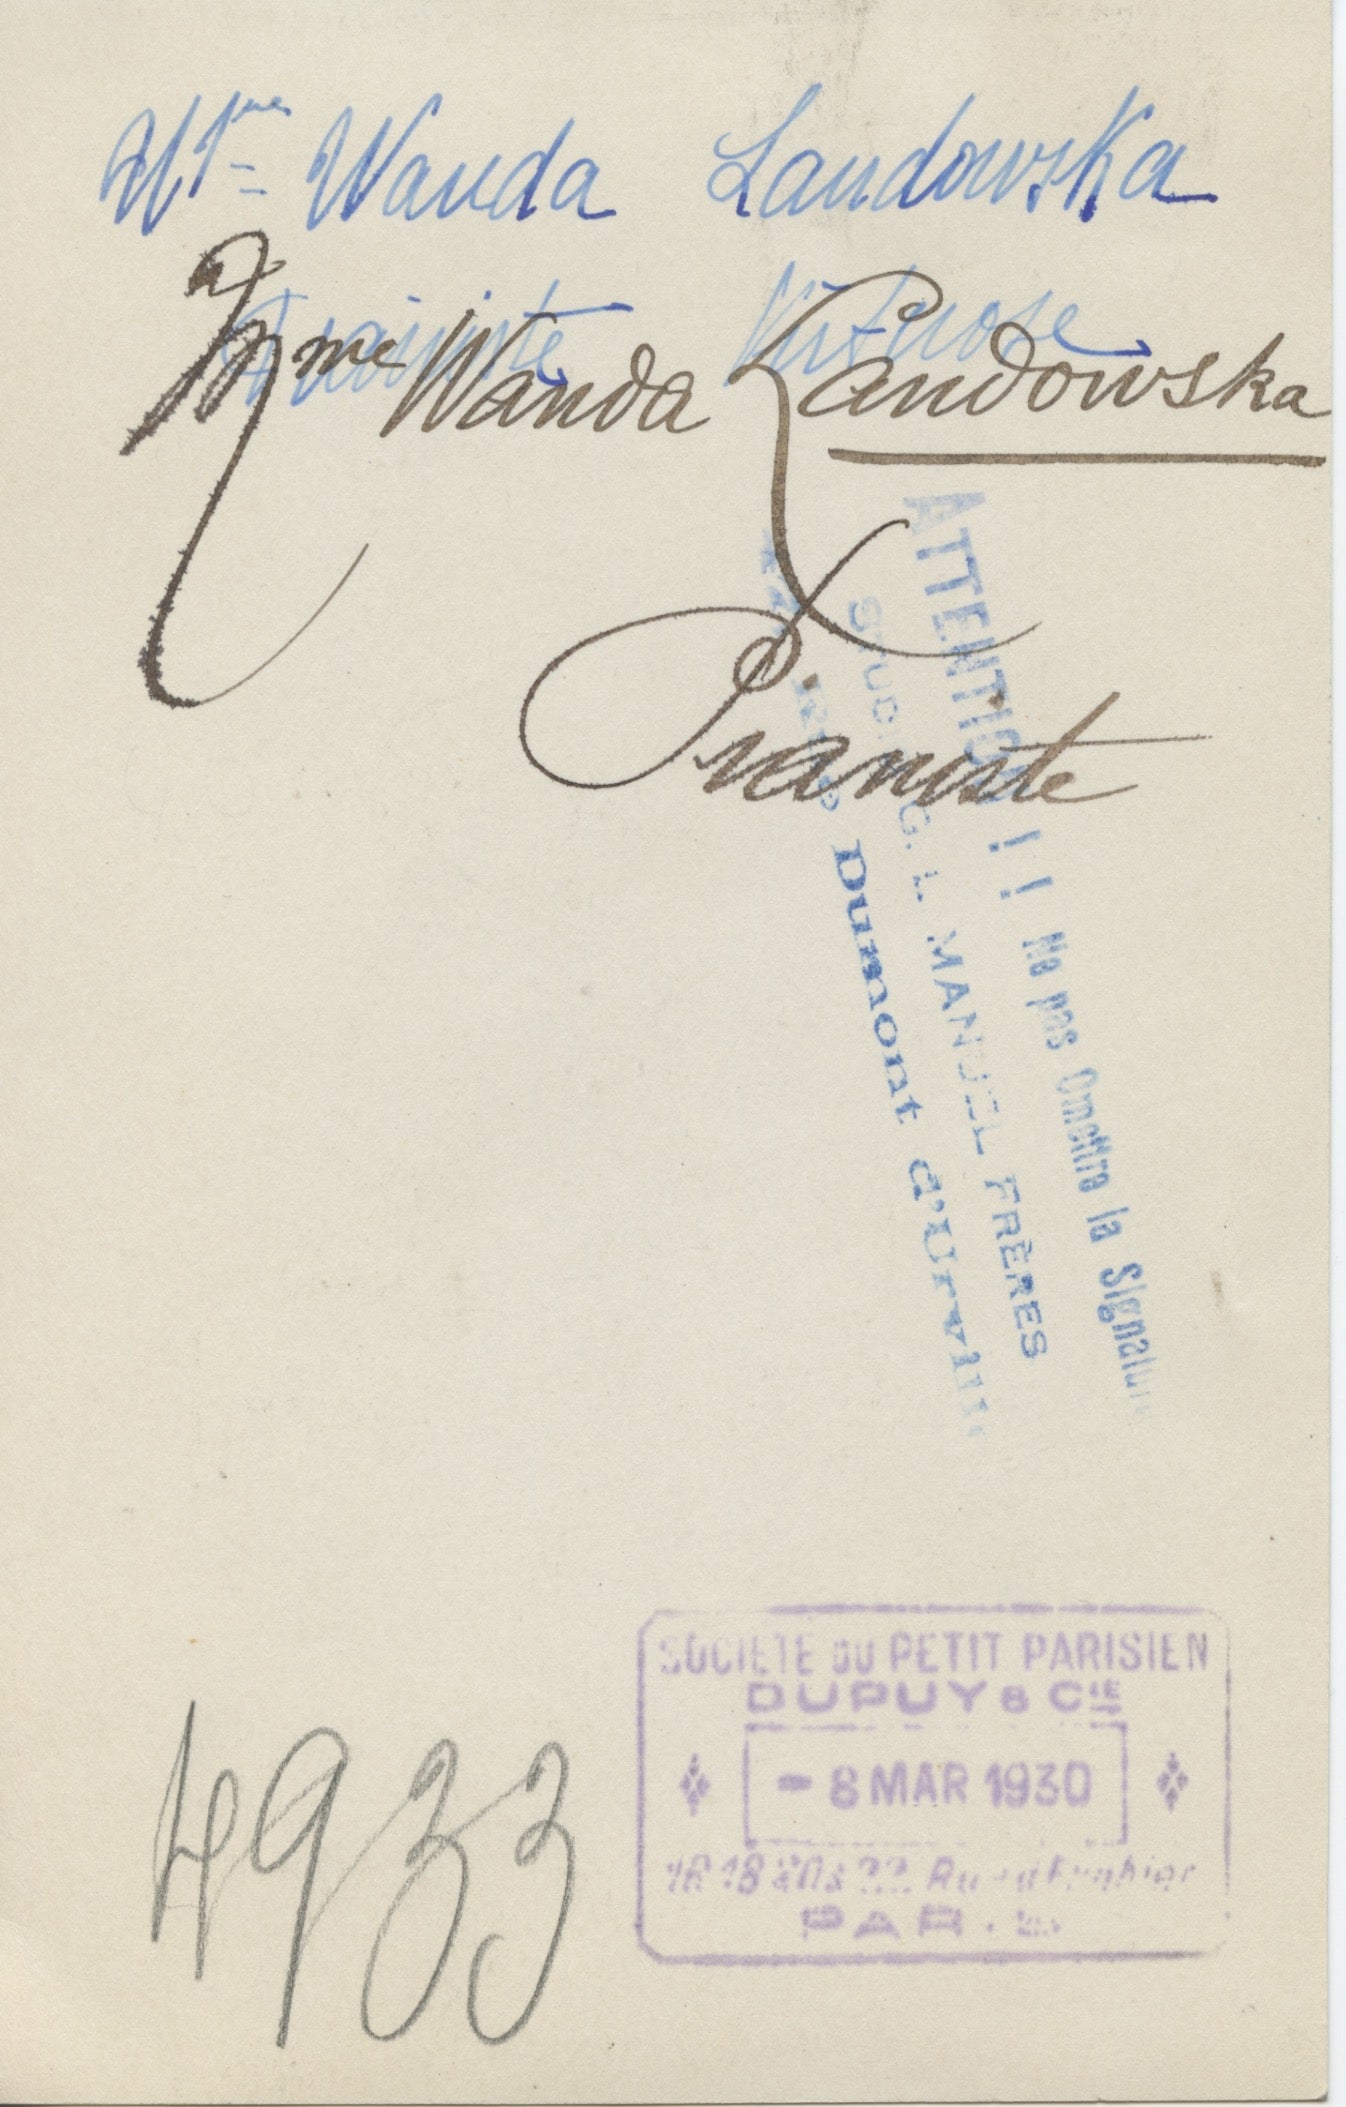 Mme Wanda Landowska
Pianiste Virtuose
Mme Wanda Landowska
Pianiste
ATTENTION !! Ne pas Omettre la Signature
STUDIO G. L. MANUEL FRÈRES
Dumont d'Urville
SOCIETE DU PETIT PARISIEN
DUPUY & CIE
- 8 MAR 1930
PARIS
4933